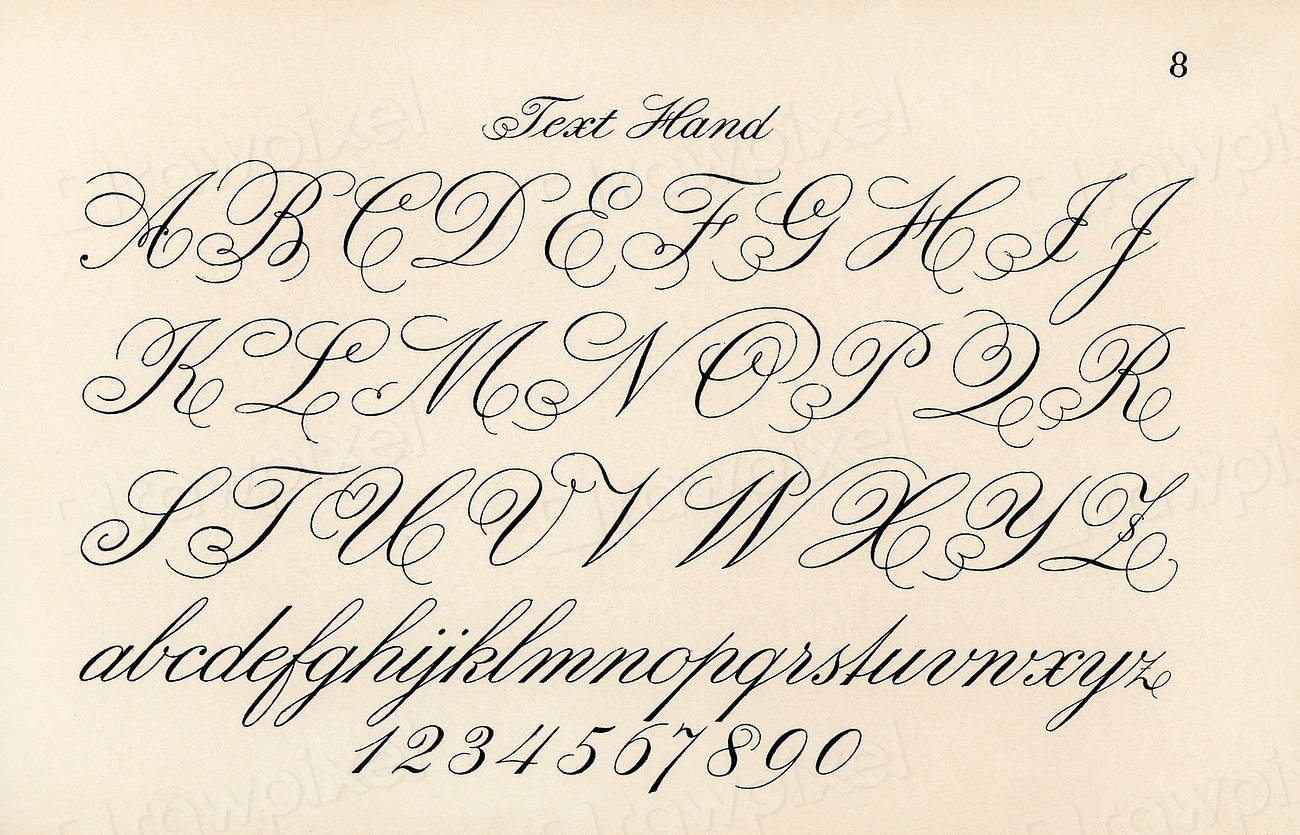 8
Text Hand
A B C D E F G H I J
K L M N O P Q R
S T U V W X Y Z
abcdefghijklmnopqrstuvwxyz
1 2 3 4 5 6 7 8 9 0
rawpixel